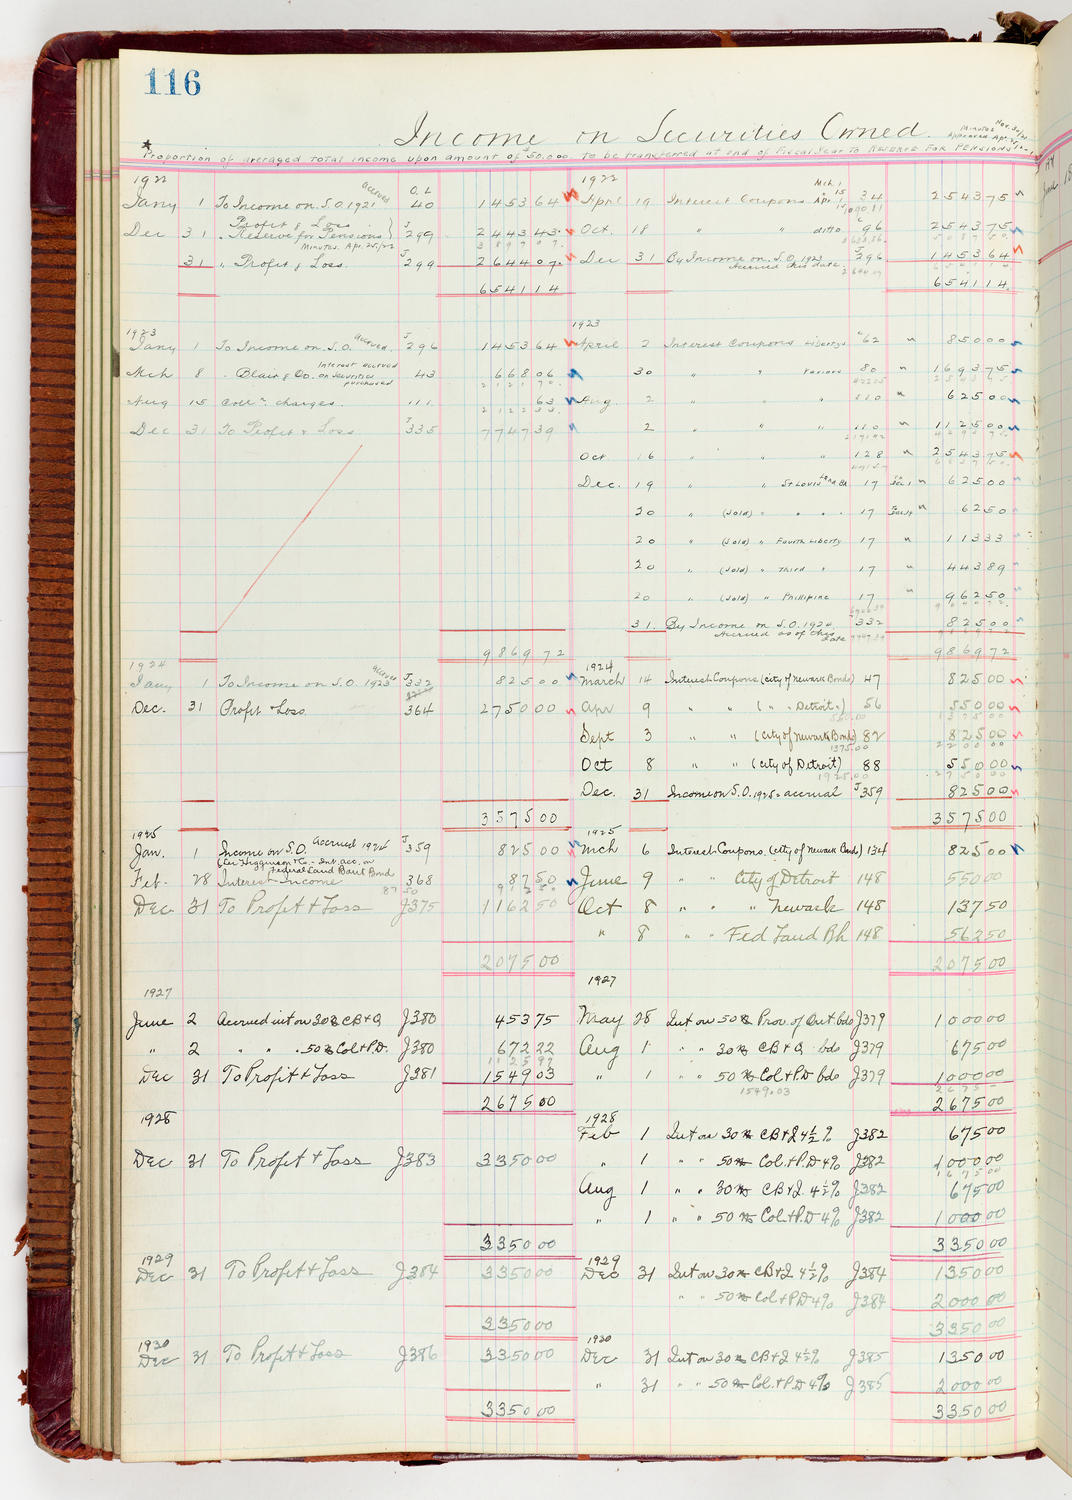 116
Income on Securities Owned.
Minutes Nov.
approved Apr.
* Proportion of averaged total income upon amount of $50,000. to be transferred at end of Fiscal Year to Reserve for Pensions
1922
Jany 1 To Income on S.O. 1921 accrued O.L 40 1453 64
Dec 31 Profit & Loss
" Reserve for Pensions } J 299 2443 43
Minutes Apr. 25/22 3897 07
31 " Profit & Loss. J 299 2644 07
6541 14
1922
April 19 Interest Coupons Mch. 1 Apr. 1 15 34 2543 75
Oct. 18 " " ditto 96 2543 75
5087 50
Dec 31 By Income on S.O. 1922 J 296 1453 64
Accrued this date
6541 14
1923
Jany 1 To Income on S.O. accrued. J 296 1453 64
Mch 8 " Blair & Co. Interest accrued on securities purchased 43 668 06
2121 70
Aug 15 Coll'n. charges. 111 63
2122 33
Dec 31 To Profit & Loss J 335 7747 39
9869 72
1923
April 2 Interest Coupons Liberty's 62 850 00
30 " " Various 80 1693 75
2543 75
Aug. 2 " " " 110 625 00
2 " " " 110 1125 00
Oct 16 " " " 128 2543 75
Dec. 19 " " St Louis Land Bk 17 625 00
20 " (Sold) " " " 17 62 50
20 " (Sold) " Fourth Liberty 17 113 33
20 " (Sold) " Third " 17 443 89
20 " (Sold) " Phillipine 17 962 50
31. By Income on S.O. 1924 J 332 825 00
Accrued as of this date
9869 72
1924
Jany 1 To Income on S.O. 1923 accrued J 332 825 00
Dec. 31 Profit & Loss 364 2750 00
3575 00
1924
March 14 Interest Coupons (City of Newark Bonds) 47 825 00
Apr 9 " " ( " " Detroit ") 56 550 00
550.00 1375 00
Sept 3 " " (City of Newark Bonds) 82 825 00
1375.00 2200 00
Oct 8 " " (City of Detroit) 88 550 00
1925.00 2750 00
Dec. 31 Income on S.O. 1925 accrual J 359 825 00
3575 00
1925
Jan. 1 Income on S.O. Accrued 1924 J 359 825 00
Lee Higginson & Co. - Int. acc. on
Federal Land Bank Bond
Feb. 28 Interest Income 368 87 50
87 50 912 50
Dec 31 To Profit & Loss J375 1162 50
2075 00
1925
Mch 6 Interest Coupons. (City of Newark Bonds) 134 825 00
June 9 " " City of Detroit 148 550 00
Oct 8 " " " Newark 148 137 50
" 8 " " Fed Land Bk 148 562 50
2075 00
1927
June 2 Accrued int on 30 M CB & Q J380 453 75
" 2 " " " 50 M Col & P.D. J380 672 22
1125 97
Dec 31 To Profit & Loss J381 1549 03
2675 00
1927
May 28 Int on 50 M Prov. of Ont bds J379 1000 00
Aug 1 " " 30 M CB & Q bds J379 675 00
" 1 " " 50 M Col & P.D bds J379 1000 00
1549.03 2675
2675 00
1928
Dec 31 To Profit & Loss J383 3350 00
3350 00
1928
Feb 1 Int on 30 M CB & Q 4½% J382 675 00
" 1 " " 50 M Col. & P.D 4% J382 1000 00
1675 00
Aug 1 " " 30 M CB & Q. 4½% J382 675 00
" 1 " " 50 M Col. & P.D 4% J382 1000 00
3350 00
1929
Dec 31 To Profit & Loss J384 3350 00
3350 00
1929
Dec 31 Int on 30 M CB & Q 4½% J384 1350 00
" " 50 M Col & P.D 4% J384 2000 00
3350 00
1930
Dec 31 To Profit & Loss J386 3350 00
3350 00
1930
Dec 31 Int on 30 M CB & Q 4½% J385 1350 00
" 31 " " 50 M Col. & P.D 4% J385 2000 00
3350 00